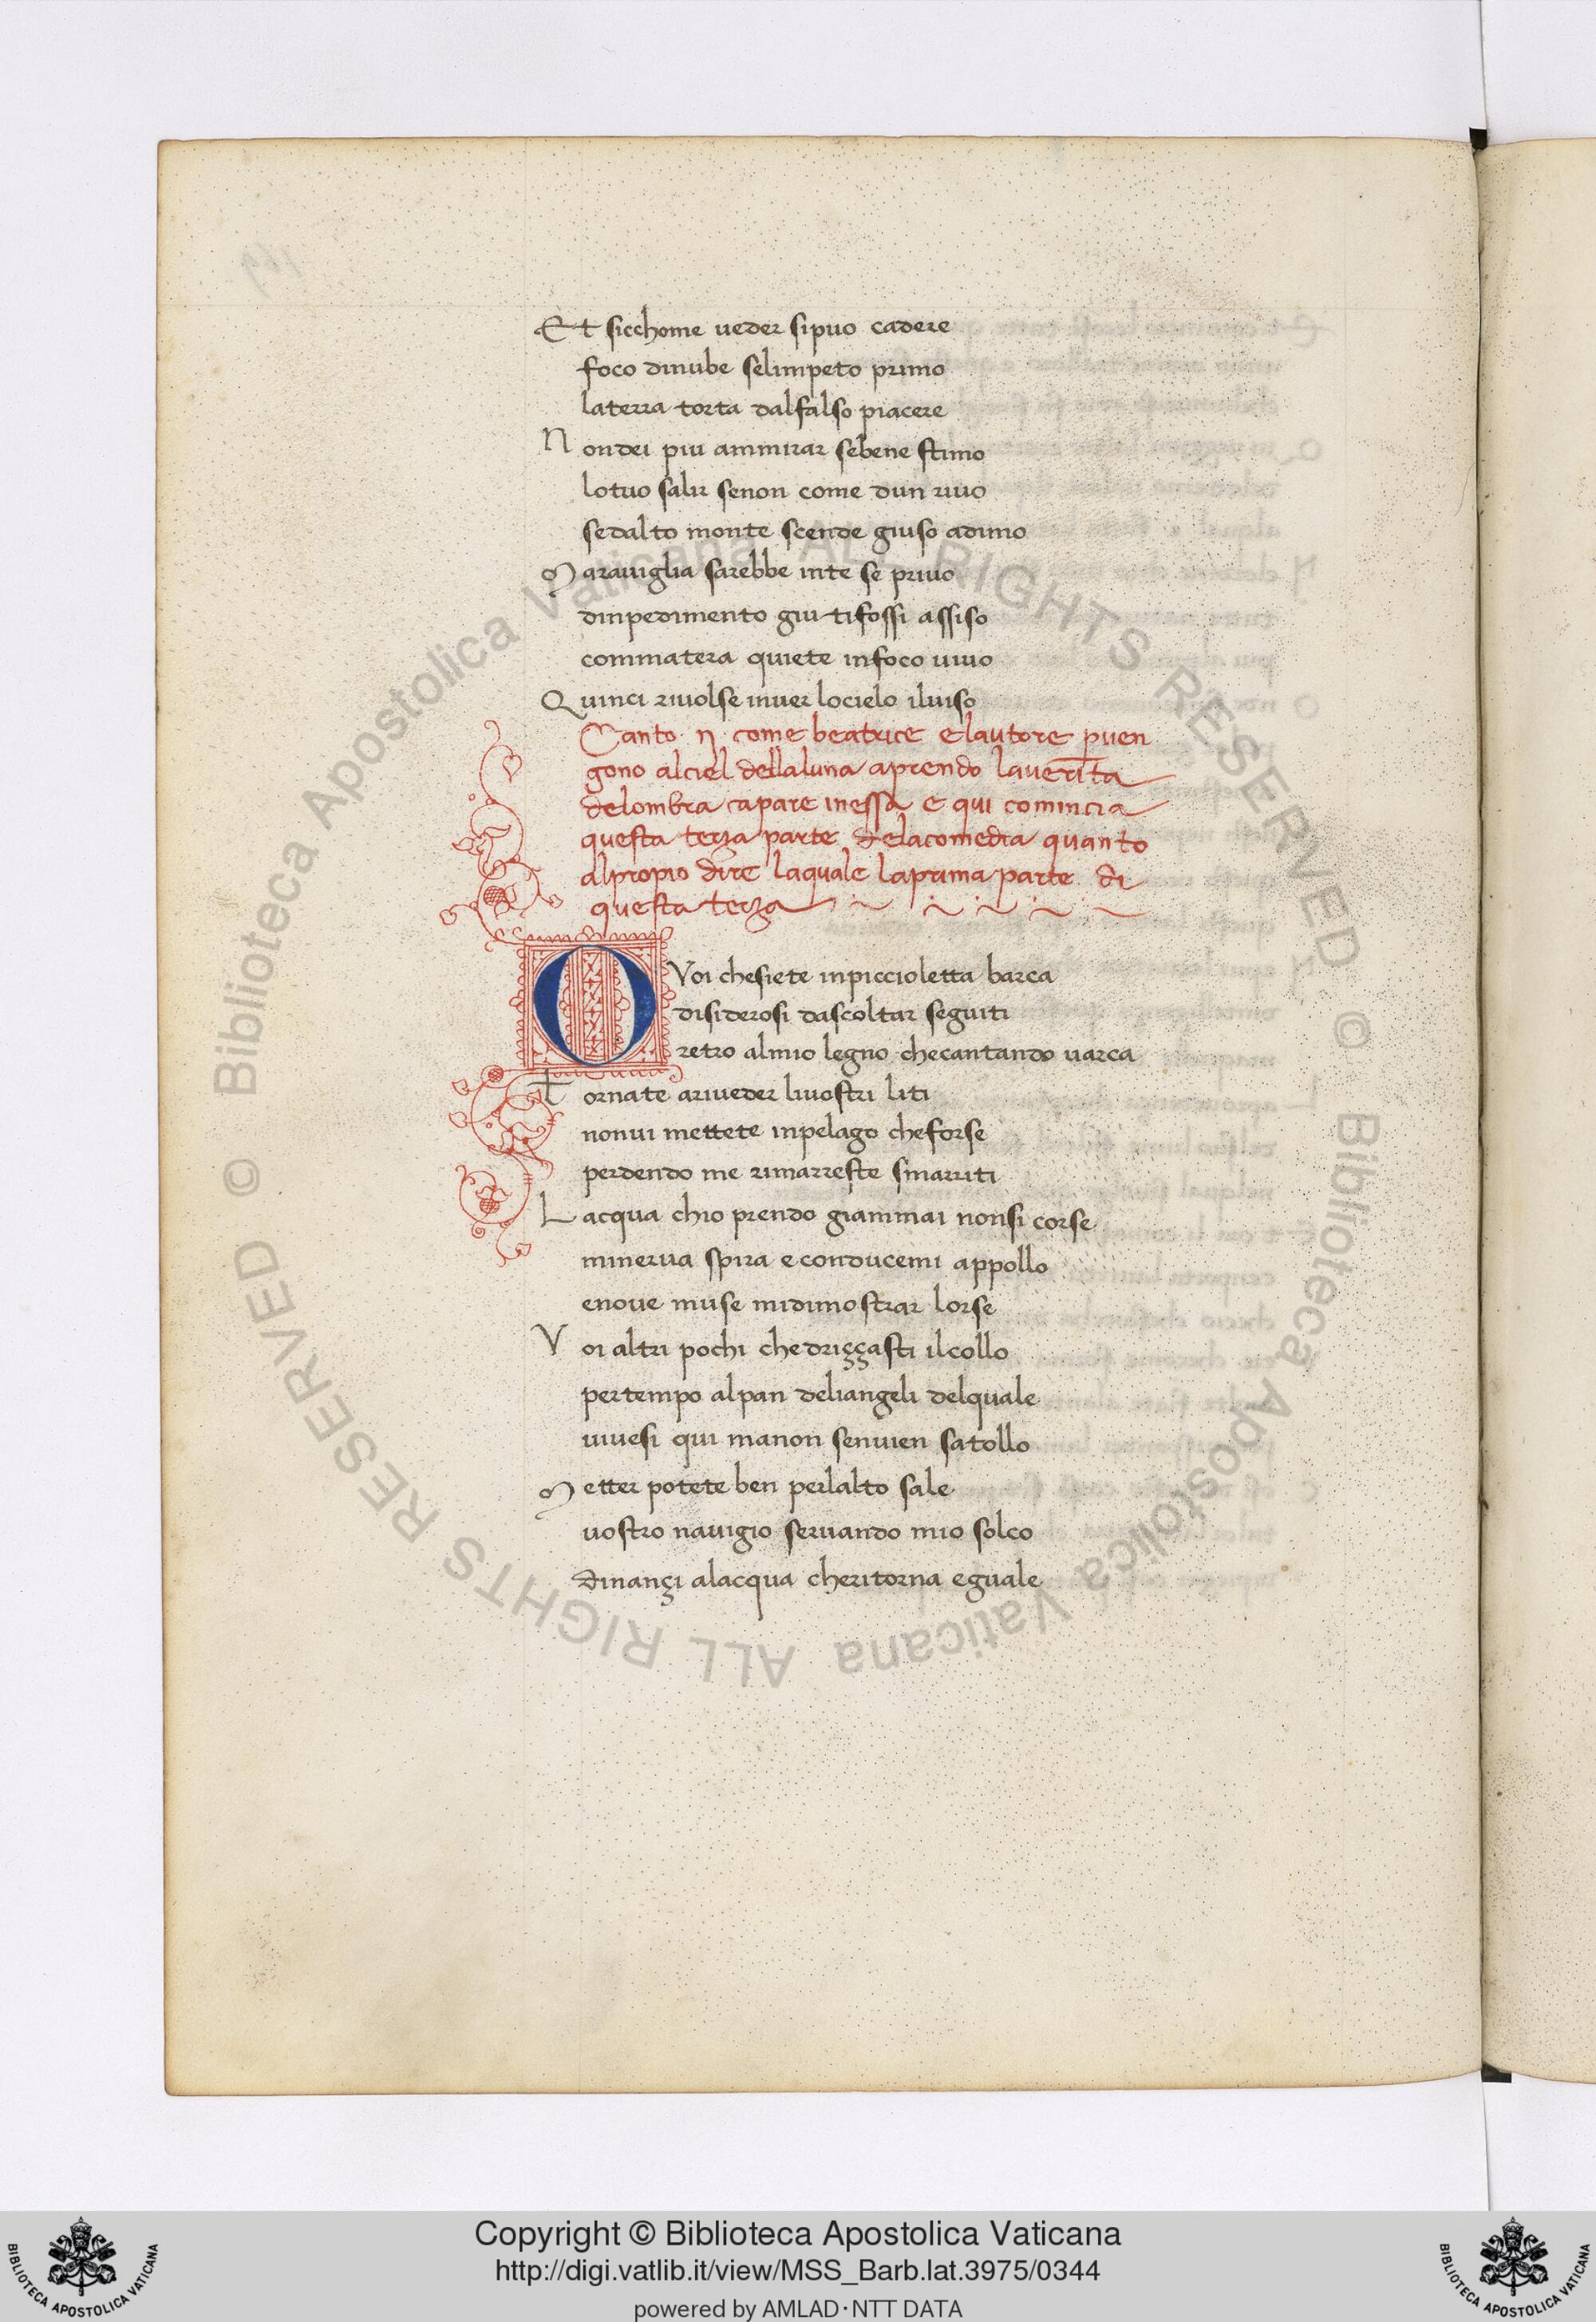 Et sicchome ueder sipuo cadere
foco dinube selimpeto primo
laterra torta dalfalso piacere
N ondei piu ammirar sebene stimo
lotuo salir senon come dun riuo
sedalto monte scende giuso adimo
M arauiglia sarebbe inte se priuo
dinpedimento giu tifossi assiso
commatera quiete infoco uiuo
Quinci riuolse inuer locielo iluiso
Canto · ij · come beatrice elautore puen
gono alciel dellaluna aprendo lauerita
delombra capare inessa e qui comincia
questa terza parte delacomedia quanto
alpropio dire laquale laprima parte di
questa terza
O Voi chesiete inpiccioletta barca
disiderosi dascoltar seguiti
retro almio legno checantando uarca
T ornate ariueder liuostri liti
nonui mettete inpelago cheforse
perdendo me rimarreste smarriti
L acqua chio prendo giammai nonsi corse
minerua spira econducemi appollo
enoue muse midimostrar lorse
V oi altri pochi chedriççasti ilcollo
pertempo alpan deliangeli delquale
uiuesi qui manon senuien satollo
M etter potete ben perlalto sale
uostro nauigio seruando mio solco
dinançi alacqua cheritorna eguale
© Biblioteca Apostolica Vaticana ALL RIGHTS RESERVED
© Biblioteca Apostolica Vaticana ALL RIGHTS RESERVED
BIBLIOTECA APOSTOLICA VATICANA
Copyright © Biblioteca Apostolica Vaticana
http://digi.vatlib.it/view/MSS_Barb.lat.3975/0344
powered by AMLAD·NTT DATA
BIBLIOTECA APOSTOLICA VATICANA